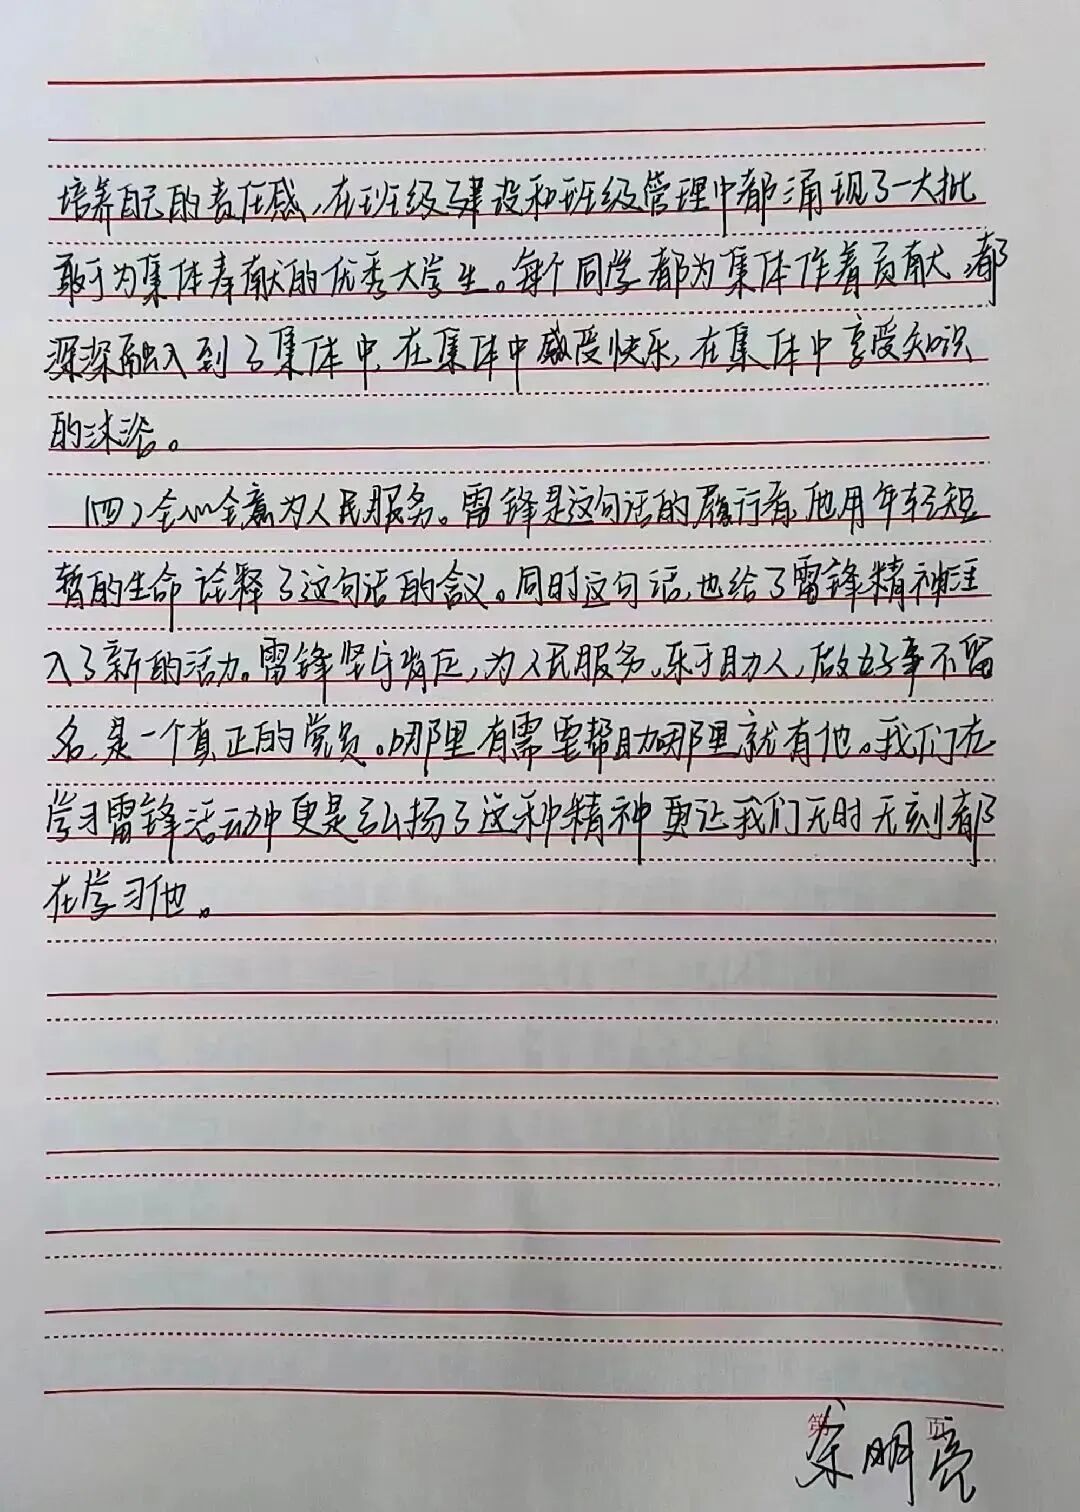 培养自己的责任感,在班级建设和班级管理中都涌现了一大批
敢于为集体奉献的优秀大学生。每个同学都为集体作着贡献,都
深深融入到了集体中,在集体中感受快乐,在集体中享受知识
的沐浴。
(四)全心全意为人民服务。雷锋是这句话的履行者,他用年轻短
暂的生命诠释了这句话的含义。同时这句话,也给了雷锋精神注
入了新的活力。雷锋坚守岗位,为人民服务,乐于助人,做好事不留
名,是一个真正的党员。哪里有需要帮助哪里就有他。我们在
学习雷锋活动中更是弘扬了这种精神更让我们无时无刻都
在学习他。
第 页
余明亮